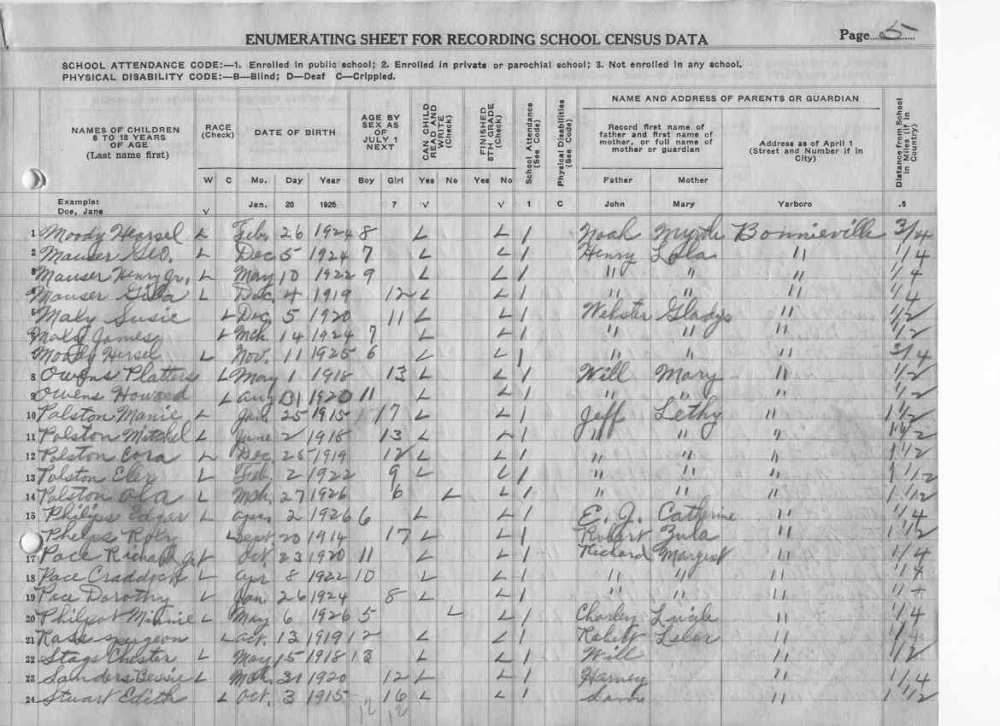 ENUMERATING SHEET FOR RECORDING SCHOOL CENSUS DATA
Page 5
SCHOOL ATTENDANCE CODE:—1. Enrolled in public school; 2. Enrolled in private or parochial school; 3. Not enrolled in any school.
PHYSICAL DISABILITY CODE:—B—Blind; D—Deaf C—Crippled.
NAMES OF CHILDREN 6 TO 18 YEARS OF AGE (Last name first)
RACE (Check)
DATE OF BIRTH
AGE BY SEX AS OF JULY 1 NEXT
CAN CHILD READ AND WRITE (Check)
FINISHED 8TH GRADE (Check)
School Attendance (See Code)
Physical Disabilities (See Code)
NAME AND ADDRESS OF PARENTS OR GUARDIAN
Record first name of father and first name of mother, or full name of mother or guardian
Address as of April 1 (Street and Number if in City)
Distance from School in Miles (if in Country)
W C Mo. Day Year Boy Girl Yes No Yes No Father Mother
Example: Doe, Jane V Jan. 20 1925 7 V V 1 C John Mary Yarboro .5
1 Moody Hearsel L Feb. 26 1924 8 L L 1 Noah Myrtle Bonnieville 3/4
2 Mauser Geo. L Dec 5 1924 7 L L 1 Henry Lola " 1/4
3 Mauser Henry Jr. L May 10 1922 9 L L 1 " " " 1/4
4 Mauser L Dec. 4 1919 12 L L 1 " " " 1/4
5 Maby Susie L Dec 5 1920 11 L L 1 Webster Gladys " 1/2
6 James L Mch. 14 1924 7 L L 1 " " " 1/2
7 Moody Hersel L Nov. 11 1925 6 L L 1 " " " 3/4
8 Owens Platters L May 1 1918 13 L L 1 Will Mary " 1/2
9 Owens Howard L Aug 31 1920 11 L L 1 " " " 1/2
10 Polston Manie L Jan. 25 1915 17 L L 1 Jeff Lethy " 1 1/2
11 Polston Mitchel L June 2 1918 13 L L 1 " " " 1 1/2
12 Polston Cora L Dec. 25 1919 12 L L 1 " " " 1 1/2
13 Polston L Feb. 2 1922 9 L L 1 " " " 1 1/2
14 Polston Ola L Mch. 27 1926 6 L L 1 " " " 1 1/2
15 Philips Edgar L Apr. 2 1926 6 L L 1 E. J. Catherine " 1/4
Phelps L Sept 20 1914 17 L L 1 Robert Zula " 1 1/2
17 Pace Richard Jr. L Oct 23 1920 11 L L 1 Richard Margret " 1/4
18 Pace Craddock L Apr 8 1922 10 L L 1 " " " 1/4
19 Pace Dorothy L Jan 26 1924 8 L L 1 " " " 1/4
20 Philpot Minnie L May 6 1926 5 L L 1 Charley " 1/4
21 L Oct. 13 1919 12 L L 1 " 1/4
22 Stags Chester L May 15 1918 13 L L 1 Will " 1/2
23 Sanders Bessie L Mch. 31 1920 12 L L 1 Harvey " 1/4
24 Stuart Edith L Oct. 3 1915 16 L L 1 Sam " 1 1/2
12 12